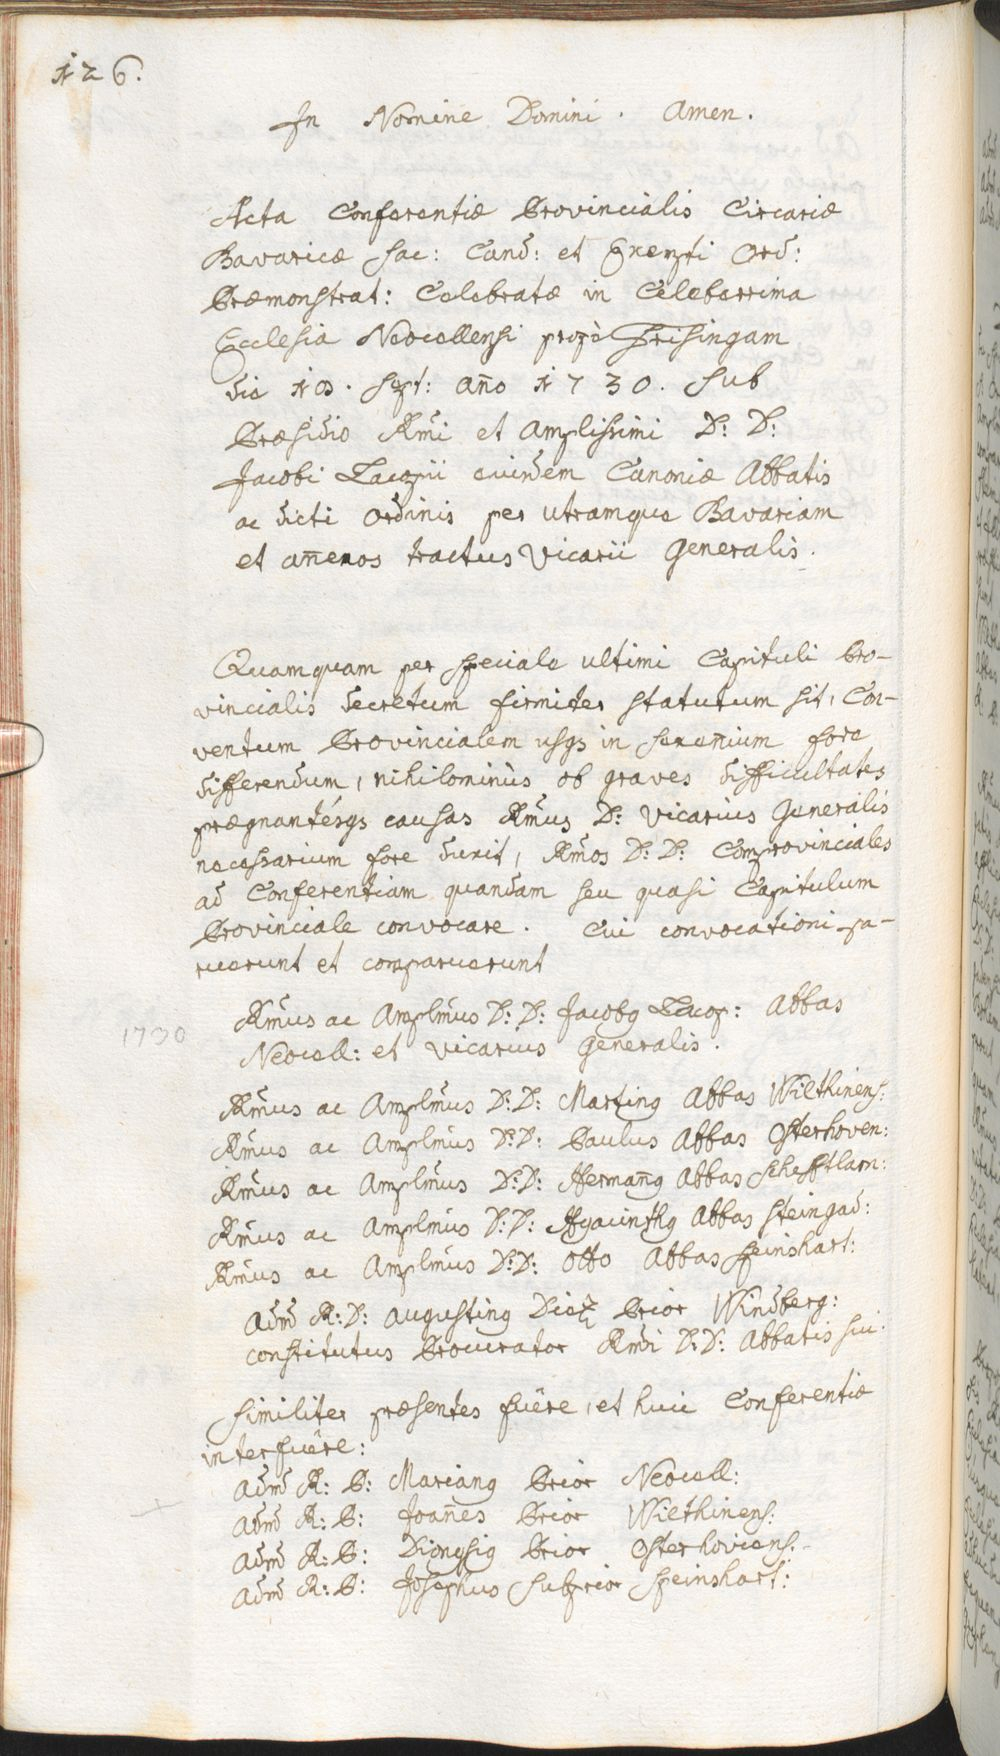 126.
In Nomine Domini. Amen.
Acta Conferentiæ Provincialis Circariæ
Bavaricæ Sac: Cand: et Exempti Ord:
Præmonstrat: Celebratæ in Celeberrima
Ecclesia Neocellensi propè Frisingam
die Sept: año 1730. sub
Præsidio Rm̃i et Amplissimi D: D:
Jacobi Lacopii eiusdem Canoniæ Abbatis
ac dicti Ordinis per utramque Bavariam
et añexos tractus Vicarii Generalis.
Quamquam per speciale ultimi Capituli Pro-
vincialis decretum firmiter statutum sit, Con-
ventum Provincialem usqȝ in sexeñium fore
differendum, nihilominùs ob graves difficultates
prægnantésqȝ causas Rm̃us D: Vicarius Generalis
necessarium fore duxit, Rm̃os D: D: Comprovinciales
ad Conferentiam quandam seu quasi Capitulum
Provinciale convocare. Cui convocationi pa-
ruerunt et comparuerunt
Rm̃us ac Amplm̃us D: D: Jacobꝰ Lacop: Abbas
1730
Neocell: et Vicarius Generalis.
Rm̃us ac Amplm̃us D: D: Martinꝰ Abbas Wilthinens:
Rm̃us ac Amplm̃us D: D: Paulus Abbas Osterhoven:
Rm̃us ac Amplm̃us D: D: Hermañꝰ Abbas Schefftlarn:
Rm̃us ac Amplm̃us D: D: Hyacinthꝰ Abbas Steingad:
Rm̃us ac Amplm̃us D: D: Otto Abbas Speinshart:
Adm̃ R: D: Augustinꝰ Diez Prior Windberg:
constitutus Procurator Rm̃i D: D: Abbatis sui.
Similiter præsentes fuêre, et huic Conferentiæ
interfuêre:
Adm̃ R: P: Marianꝰ Prior Neocell:
Adm̃ R: P: Joañes Prior Wilthinens:
Adm̃ R: P: Dionysiꝰ Prior Osterhoviens:
Adm̃ R: P: Josephus Subprior Speinshart: